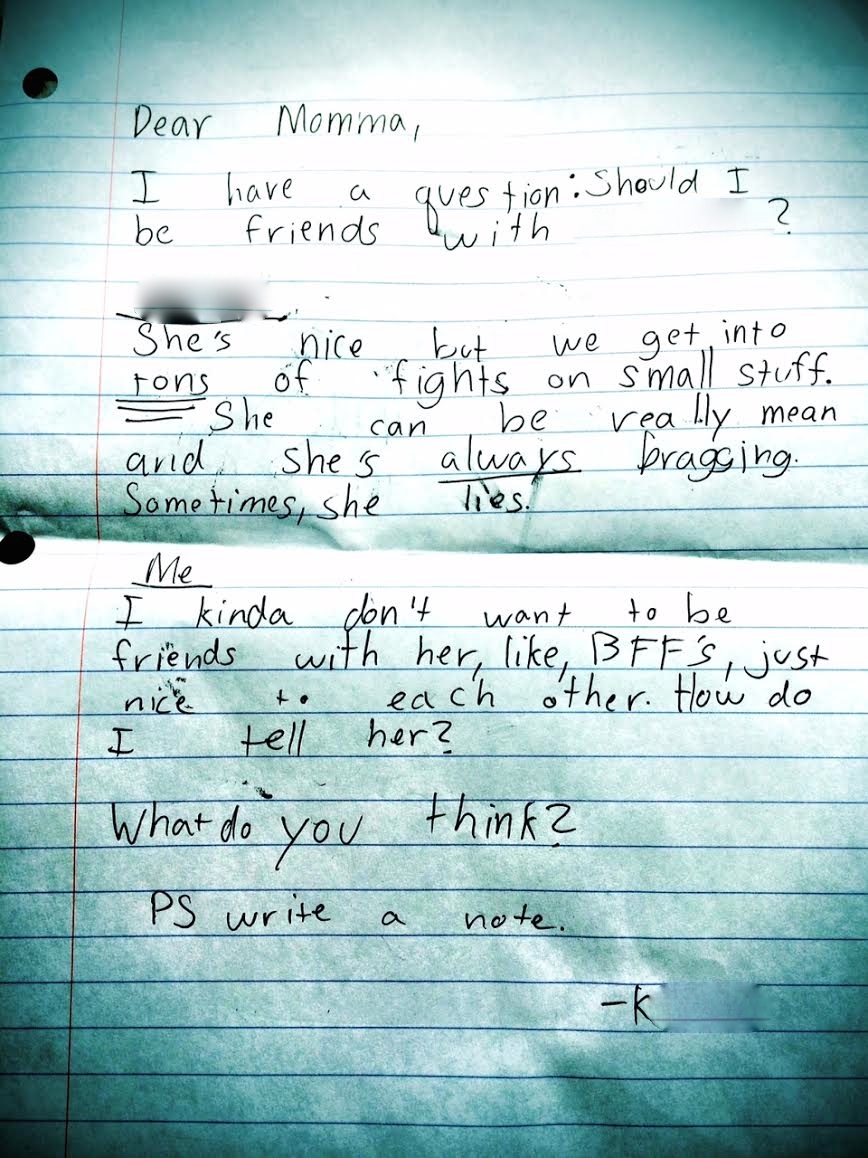 Dear Momma,
I have a question: Should I
be friends with ?
She's nice but we get into
tons of fights on small stuff.
She can be really mean
and she's always bragging.
Sometimes, she lies.
Me
I kinda don't want to be
friends with her, like, BFF's, just
nice to each other. How do
I tell her?
What do you think?
PS write a note.
-K